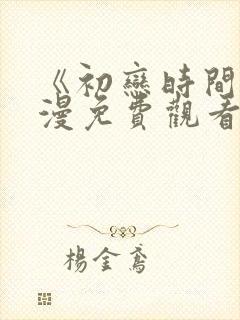 《初戀時間
漫免費觀看
楊金鳶